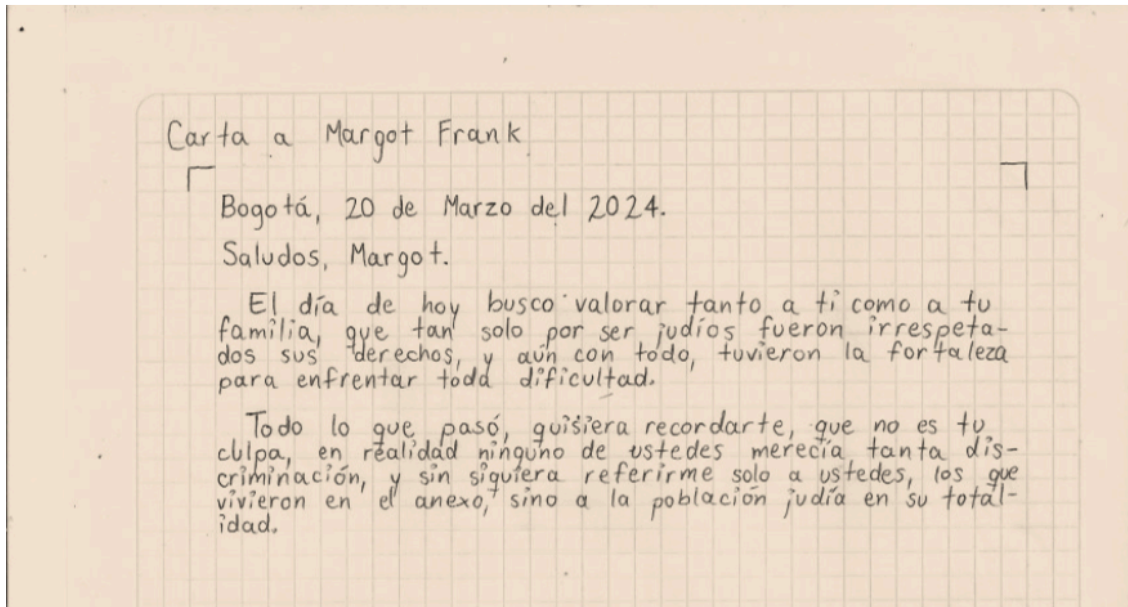 Carta a Margot Frank
Bogotá, 20 de Marzo del 2024.
Saludos, Margot.
El día de hoy busco valorar tanto a ti como a tu
família, que tan solo por ser judíos fueron irrespeta-
dos sus derechos, y aún con todo, tuvieron la fortaleza
para enfrentar toda dificultad.
Todo lo que pasó, quisiera recordarte, que no es tu
culpa, en realidad ninguno de ustedes merecía tanta dis-
criminación, y sin siquiera referirme solo a ustedes, los que
vivieron en el anexo, sino a la población judía en su total-
idad.